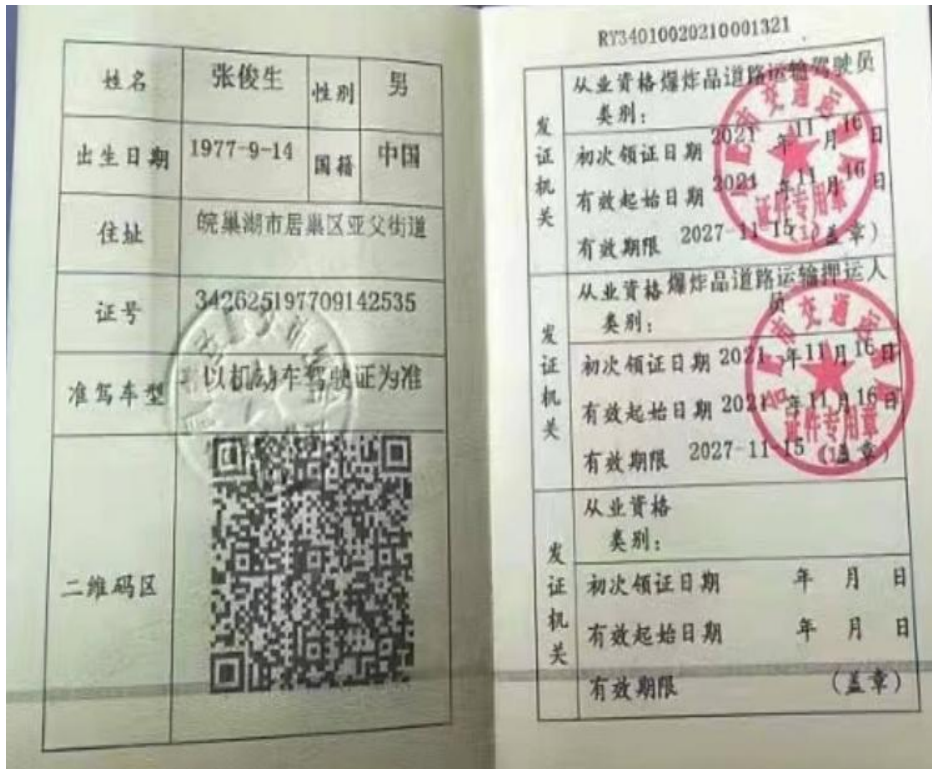 姓名 张俊生 性别 男
出生日期 1977-9-14 国籍 中国
住址 皖巢湖市居巢区亚父街道
证号 342625197709142535
准驾车型 以机动车驾驶证为准
二维码区
RY34010020210001321
发证机关
从业资格 爆炸品道路运输驾驶员
类别：
初次领证日期 2021 年 11 月 16 日
有效起始日期 2021 年 11 月 16 日
有效期限 2027-11-15 （盖章）
市交通
证件专用章
发证机关
从业资格 爆炸品道路运输押运人
员
类别：
初次领证日期 2021 年 11 月 16 日
有效起始日期 2021 年 11 月 16 日
有效期限 2027-11-15 （盖章）
市交通
证件专用章
发证机关
从业资格
类别：
初次领证日期 年 月 日
有效起始日期 年 月 日
有效期限 （盖章）